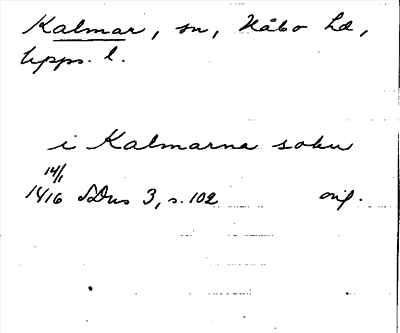 Kalmar, sn, Håbo hd,
Upps. l.
i Kalmarna sokn
14/1
1416 SDns 3, s. 102 orig.